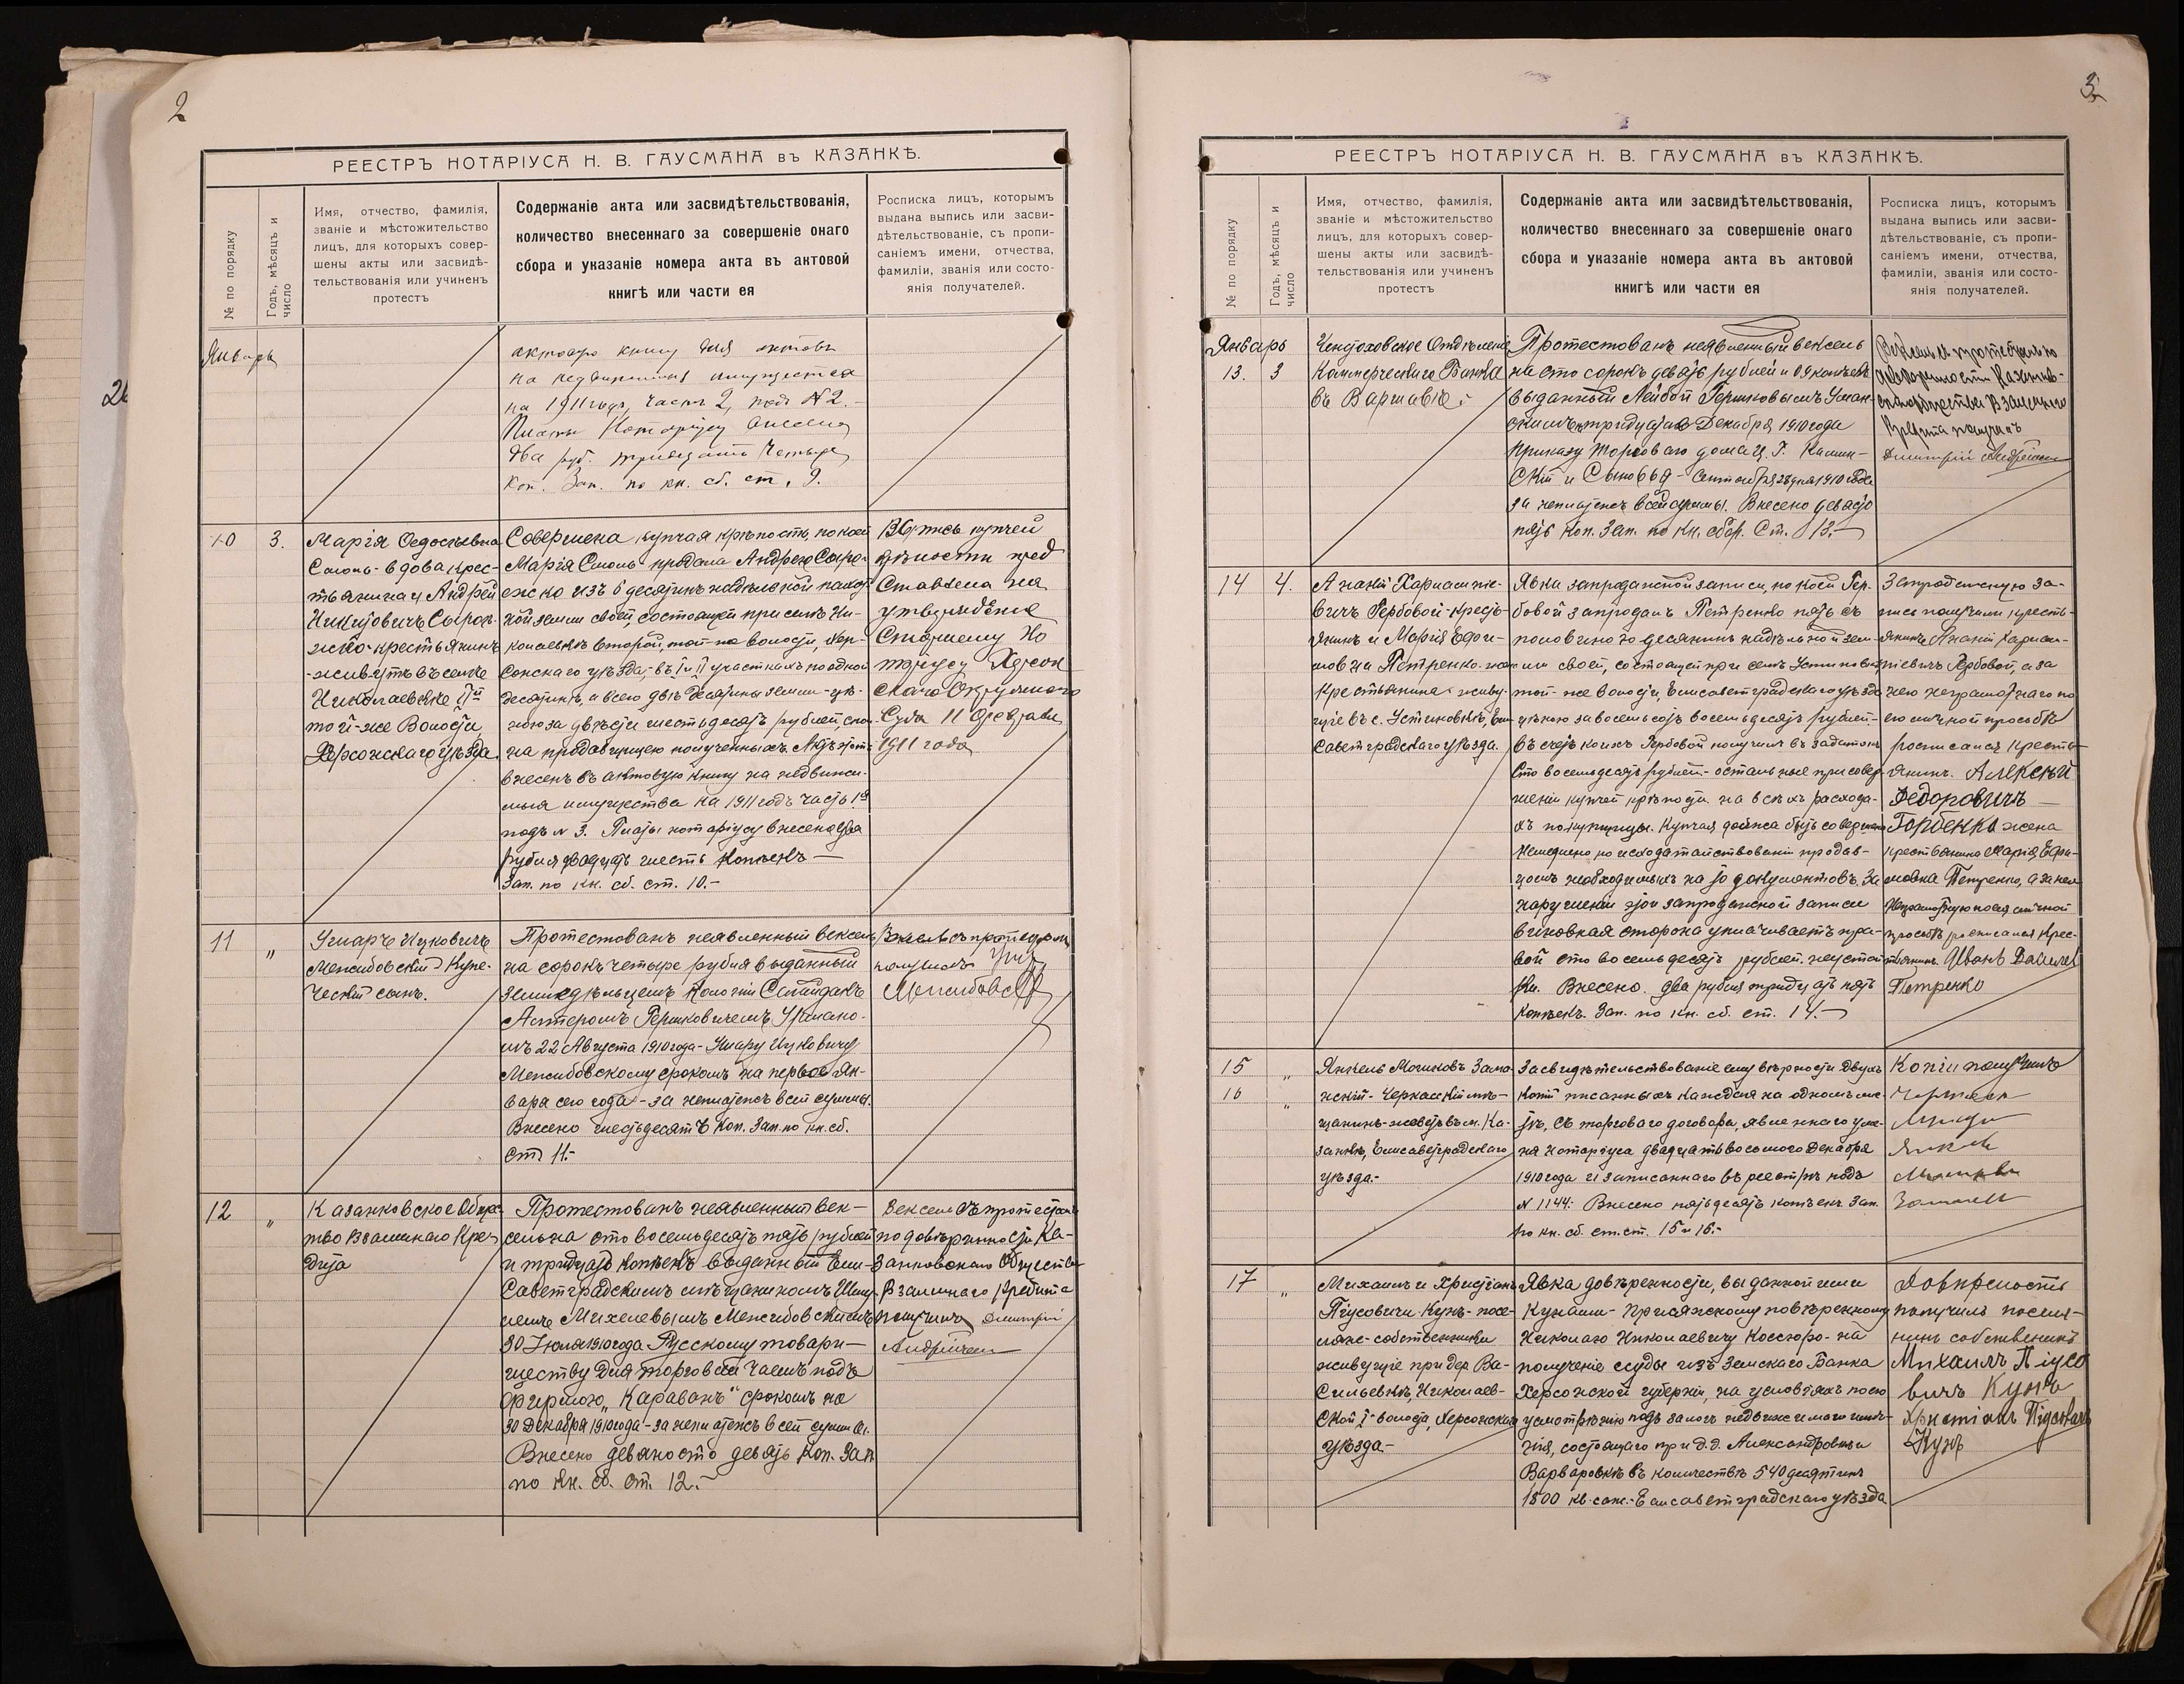 2
РЕЕСТРЪ НОТАРІУСА Н. В. ГАУСМАНА въ КАЗАНКѢ.
№ по порядку
Годъ, мѣсяцъ и число
Имя, отчество, фамилія,
званіе и мѣстожительство
лицъ, для которыхъ совер-
шены акты или засвидѣ-
тельствованія или учиненъ
протестъ
Содержаніе акта или засвидѣтельствованія,
количество внесеннаго за совершеніе онаго
сбора и указаніе номера акта въ актовой
книгѣ или части ея
Росписка лицъ, которымъ
выдана выпись или засви-
дѣтельствованіе, съ пропи-
саніемъ имени, отчества,
фамиліи, званія или состо-
янія получателей.
Январь
книгу для актовъ
на недвижимыя имущества
на 1911 годъ, часть 2, подъ № 2.-
Платы Нотаріусу внесено
два руб. тридцать четыре
коп. Зап. по кн. сб. ст. 9.
10 3.
Марія Федосѣевна
вдова крес-
тьянина и Андрей
Никитовичъ
крестьянинъ
-живутъ въ селѣ
Николаевкѣ II й
той-же Волости,
Херсонскаго уѣзда.
Совершена купчая крѣпость, по коей
Марія продала Андрею
изъ 6 десятинъ надѣльной
земли своей состоящей при селѣ Ни-
колаевкѣ второй, той-же волости, Хер-
сонскаго уѣзда, въ I и II участкахъ по одной
десятинѣ, а всего двѣ десятины земли - цѣ-
ною за двѣсти шестьдесятъ рублей,
на продавщицею полученныхъ. Актъ этотъ
внесенъ въ актовую книгу на недвижи-
мыя имущества на 1911 годъ часть 1я
подъ № 3. Платы нотаріусу внесено два
рубля двадцать шесть копѣекъ —
Зап. по кн. сб. ст. 10.-
Выпись купчей
крѣпости пред
ставлена на
утвержденіе
Старшему Но
таріусу Херсон
скаго Окружного
Суда 11 Февраля
1911 года
11 „
Умаръ Ицковичъ
Межибовскій Купе-
ческій сынъ.
Протестованъ неявленный вексель
на сорокъ четыре рубля выданный
земледѣльцемъ Колоніи
Гершковичемъ
22 Августа 1910 года - Умару Ицковичу
Межибовскому срокомъ на первое Ян-
варя сего года - за неплатежъ всей суммы.
Внесено шестьдесятъ коп. Зап. по кн. сб.
ст. 11.-
Вексель съ протестомъ
получилъ
Межибовскій
12 „
Казанковское Общес-
тво Взаимнаго Кре-
дита
Протестованъ неявленный век-
сель на сто восемьдесятъ пять рублей
и тридцать копѣекъ выданный Ели-
саветградскимъ мѣщаниномъ
Михелевымъ Межибовскимъ
30 Іюля 1910 года Русскому товари-
ществу для торговли чаемъ подъ
фирмою „Караванъ“ срокомъ на
30 Декабря 1910 года - за неплатежъ всей суммы.
Внесено девяносто девять коп. Зап
по кн. сб. ст. 12.-
Вексель съ протестомъ
по довѣренности Ка-
занковскаго Общества
Взаимнаго Кредита
получилъ Дмитрій
3
РЕЕСТРЪ НОТАРІУСА Н. В. ГАУСМАНА въ КАЗАНКѢ.
№ по порядку
Годъ, мѣсяцъ и число
Имя, отчество, фамилія,
званіе и мѣстожительство
лицъ, для которыхъ совер-
шены акты или засвидѣ-
тельствованія или учиненъ
протестъ
Содержаніе акта или засвидѣтельствованія,
количество внесеннаго за совершеніе онаго
сбора и указаніе номера акта въ актовой
книгѣ или части ея
Росписка лицъ, которымъ
выдана выпись или засви-
дѣтельствованіе, съ пропи-
саніемъ имени, отчества,
фамиліи, званія или состо-
янія получателей.
Январь
13. 3
Ченстоховское Отдѣленіе
Коммерческаго Банка
въ Варшавѣ.
Протестованъ неявленный вексель
на сто сорокъ девять рублей и копѣекъ
выданный Лейбой Гершковымъ Уман-
скимъ на тридцатое Декабря 1910 года
приказу Торговаго дома
и Сыновья - Сентября дня 1910 года
за неплатежъ всей суммы. Внесено девяносто
пять коп. Зап. по кн. сбор. Ст. 13.-
Вексель съ протестомъ по
довѣренности Казанков-
скаго Общества Взаимнаго
Кредита получилъ
Дмитрій
14 4.
Ананій Харлампіе-
вичъ Гербовой - кресть-
янинъ и Марія Ефи-
мовна Петренко - жена
крестьянина живу-
щіе въ с. Устиновкѣ, Ели-
саветградскаго уѣзда.
Явка запродажной записи, по коей Гер-
бовой запродалъ Петренко пять съ
половиною десятинъ надѣльной зем-
ли своей, состоящей при селѣ Устиновкѣ,
той-же волости, Елисаветградскаго уѣзда
цѣною за восемьсотъ восемьдесятъ рублей -
въ счетъ коихъ Гербовой получилъ въ задатокъ
сто восемьдесятъ рублей - остальные при совер-
шеніи купчей крѣпости на всѣхъ расхода-
хъ покупщицы. Купчая должна быть совершена
немедленно по исходатайствованіи продав-
цомъ необходимыхъ на то документовъ. За
нарушеніе этой запродажной записи
виновная сторона уплачиваетъ пра-
вой сто восемьдесятъ рублей неустой
ки. Внесено два рубля тридцать пять
копѣекъ. Зап. по кн. сб. ст. 14.-
Запродажную за-
пись получили кресть-
янинъ Ананій Харлам-
піевичъ Гербовой, а за
него неграмотнаго по
его личной просьбѣ
росписался кресть-
янинъ Алексѣй
Федоровичъ
Горбенко жена
крестьянина Марія Ефи-
мовна Петренко, а за нея
неграмотную по ея личной
просьбѣ росписался крес-
тьянинъ Иванъ
Петренко
15 „
16 „
Янкель Мошковъ
Черкасскій мѣ-
щанинъ - живетъ въ м. Ка-
занкѣ, Елисаветградскаго
уѣзда.-
Засвидѣтельствованіе ему вѣрности двухъ
копій писанныхъ каждая на одномъ лис-
тѣ, съ торговаго договора, явленнаго у ме-
ня нотаріуса двадцать восьмого Декабря
1910 года и записаннаго въ реестръ подъ
№ 1144: Внесено пятьдесятъ копѣекъ Зап.
по кн. сб. ст. ст. 15 и 16.-
Копіи получилъ
17 „
Михаилъ и Христіанъ
Піусовичи Кунъ - посе-
ляне-собственники
живущіе при дер. Ва-
сильевкѣ, Николаев-
ской I волости, Херсонскаго
уѣзда-
Явка довѣренности, выданной ими
Кунами - присяжному повѣренному
Николаю Николаевичу - на
полученіе ссуды изъ Земскаго Банка
Херсонской губерніи, на условіяхъ по его
усмотрѣнію подъ залогъ недвижимаго имѣ-
нія, состоящаго при д.д. Александровкѣ и
Варваровкѣ въ количествѣ 540 десятинъ
1800 кв. саж. - Елисаветградскаго уѣзда
Довѣренность
получилъ поселя-
нинъ собственникъ
Михаилъ Піусо
вичъ Кунъ
Христіанъ Піусовичъ
Кунъ